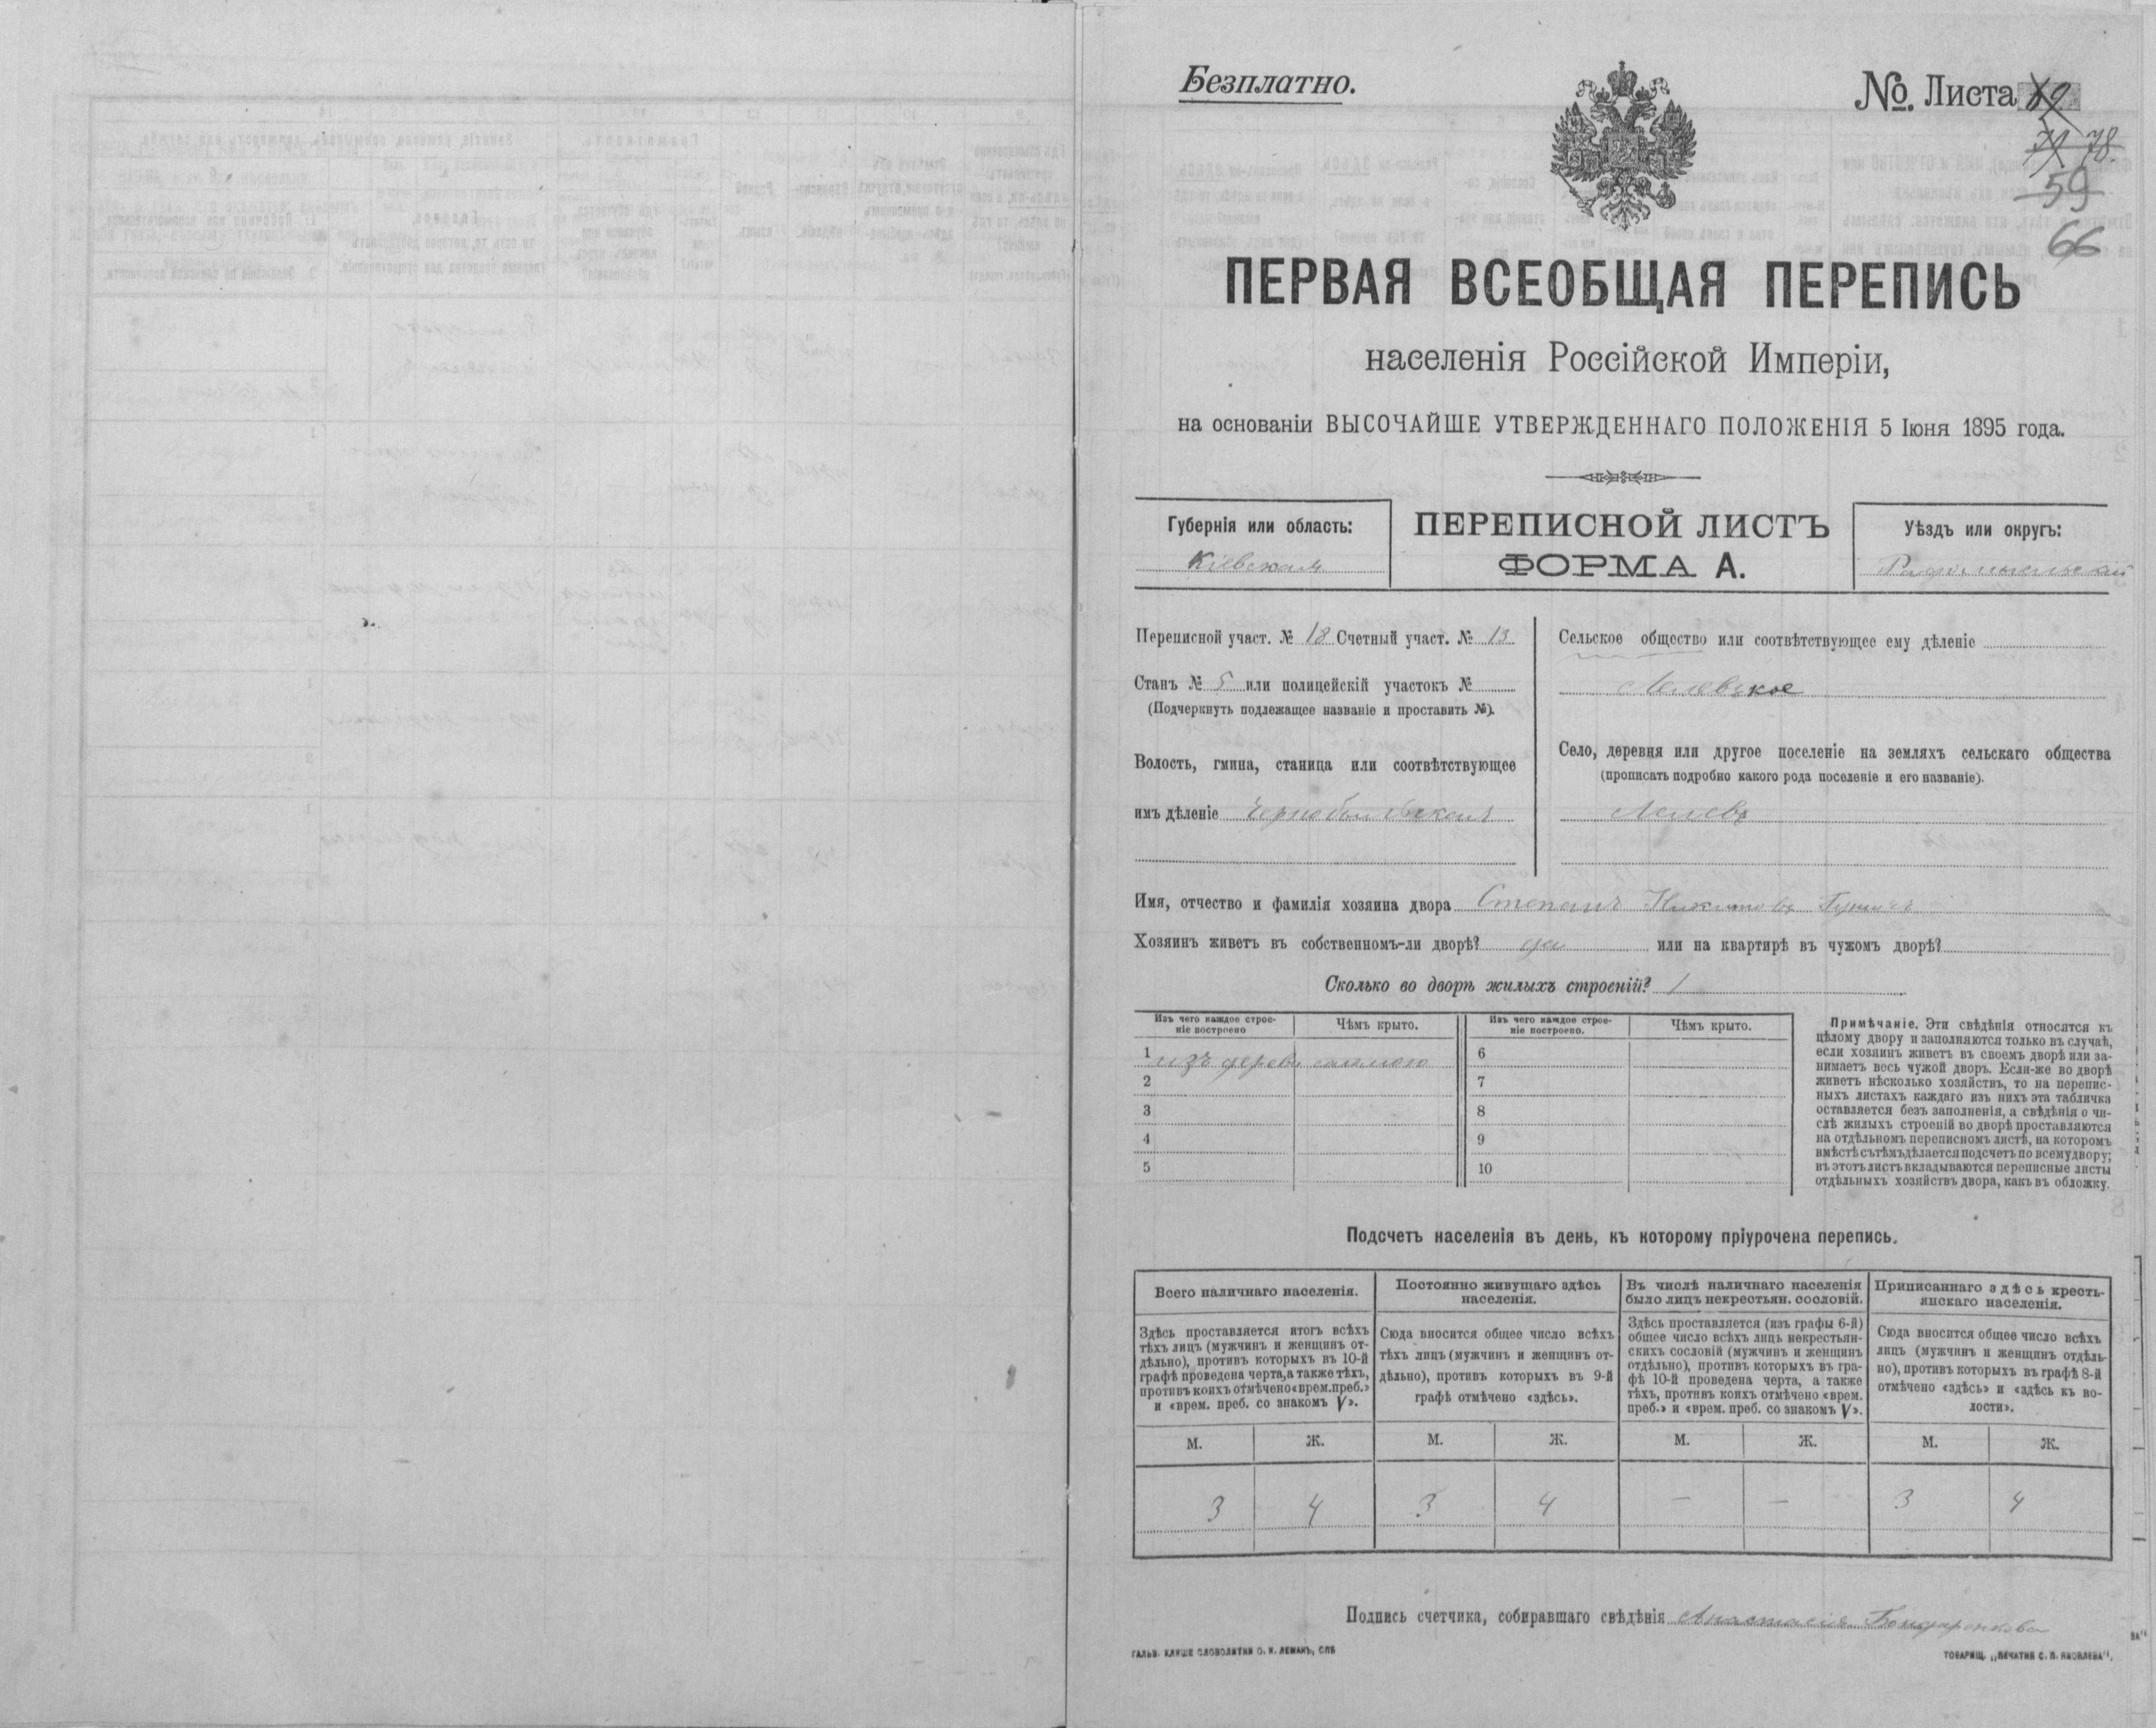 Безплатно.
№. Листа
78.
59
66
ПЕРВАЯ ВСЕОБЩАЯ ПЕРЕПИСЬ
населенія Россійской Имперіи,
на основаніи ВЫСОЧАЙШЕ УТВЕРЖДЕННАГО ПОЛОЖЕНІЯ 5 Іюня 1895 года.
Губернія или область:
Кіевская
ПЕРЕПИСНОЙ ЛИСТЪ
ФОРМА А.
Уѣздъ или округъ:
Радомысльскій
Переписной участ. № 18 Счетный участ. № 13
Станъ № 5 или полицейскій участокъ №
(Подчеркнуть подлежащее названіе и проставить №).
Волость, гмина, станица или соотвѣтствующее
имъ дѣленіе Чернобыльская
Сельское общество или соотвѣтствующее ему дѣленіе
Лелевское
Село, деревня или другое поселеніе на земляхъ сельскаго общества
(прописать подробно какого рода поселеніе и его названіе).
Лелевъ
Имя, отчество и фамилія хозяина двора Степанъ Никитовъ
Хозяинъ живетъ въ собственномъ-ли дворѣ? да или на квартирѣ въ чужомъ дворѣ?
Сколько во дворѣ жилыхъ строеній? 1
Изъ чего каждое строе-
ніе построено
Чѣмъ крыто.
Изъ чего каждое строе-
ніе построено.
Чѣмъ крыто.
1 изъ дерева соломою
2
3
4
5
6
7
8
9
10
Примѣчаніе. Эти свѣдѣнія относятся къ
цѣлому двору и заполняются только въ случаѣ,
если хозяинъ живетъ въ своемъ дворѣ или за-
нимаетъ весь чужой дворъ. Если-же во дворѣ
живетъ нѣсколько хозяйствъ, то на перепис-
ныхъ листахъ каждаго изъ нихъ эта табличка
оставляется безъ заполненія, а свѣдѣнія о чи-
слѣ жилыхъ строеній во дворѣ проставляются
на отдѣльномъ переписномъ листѣ, на которомъ
вмѣстѣ съ тѣмъ дѣлается подсчетъ по всему двору;
въ этотъ листъ вкладываются переписные листы
отдѣльныхъ хозяйствъ двора, какъ въ обложку.
Подсчетъ населенія въ день, къ которому пріурочена перепись.
Всего наличнаго населенія.
Здѣсь проставляется итогъ всѣхъ
тѣхъ лицъ (мужчинъ и женщинъ от-
дѣльно), противъ которыхъ въ 10-й
графѣ проведена черта, а также тѣхъ,
противъ коихъ отмѣчено «врем. преб.»
и «врем. преб. со знакомъ V».
Постоянно живущаго здѣсь
населенія.
Сюда вносится общее число всѣхъ
тѣхъ лицъ (мужчинъ и женщинъ от-
дѣльно), противъ которыхъ въ 9-й
графѣ отмѣчено «здѣсь».
Въ числѣ наличнаго населенія
было лицъ некрестьян. сословій.
Здѣсь проставляется (изъ графы 6-й)
общее число всѣхъ лицъ некрестьян-
скихъ сословій (мужчинъ и женщинъ
отдѣльно), противъ которыхъ въ гра-
фѣ 10-й проведена черта, а также
тѣхъ, противъ коихъ отмѣчено «врем.
преб.» и «врем. преб. со знакомъ V».
Приписаннаго здѣсь кресть-
янскаго населенія.
Сюда вносится общее число всѣхъ
лицъ (мужчинъ и женщинъ отдѣль-
но), противъ которыхъ въ графѣ 8-й
отмѣчено «здѣсь» и «здѣсь къ во-
лости».
М. Ж. М. Ж. М. Ж. М. Ж.
3 4 3 4 — — 3 4
Подпись счетчика, собиравшаго свѣдѣнія Анастасія Бондаренкова
ГАЛЬВ. КЛИШЕ СЛОВОЛИТНИ О. И. ЛЕМАНЪ, СПБ
ТОВАРИЩ. „ПЕЧАТНЯ С. П. ЯКОВЛЕВА".